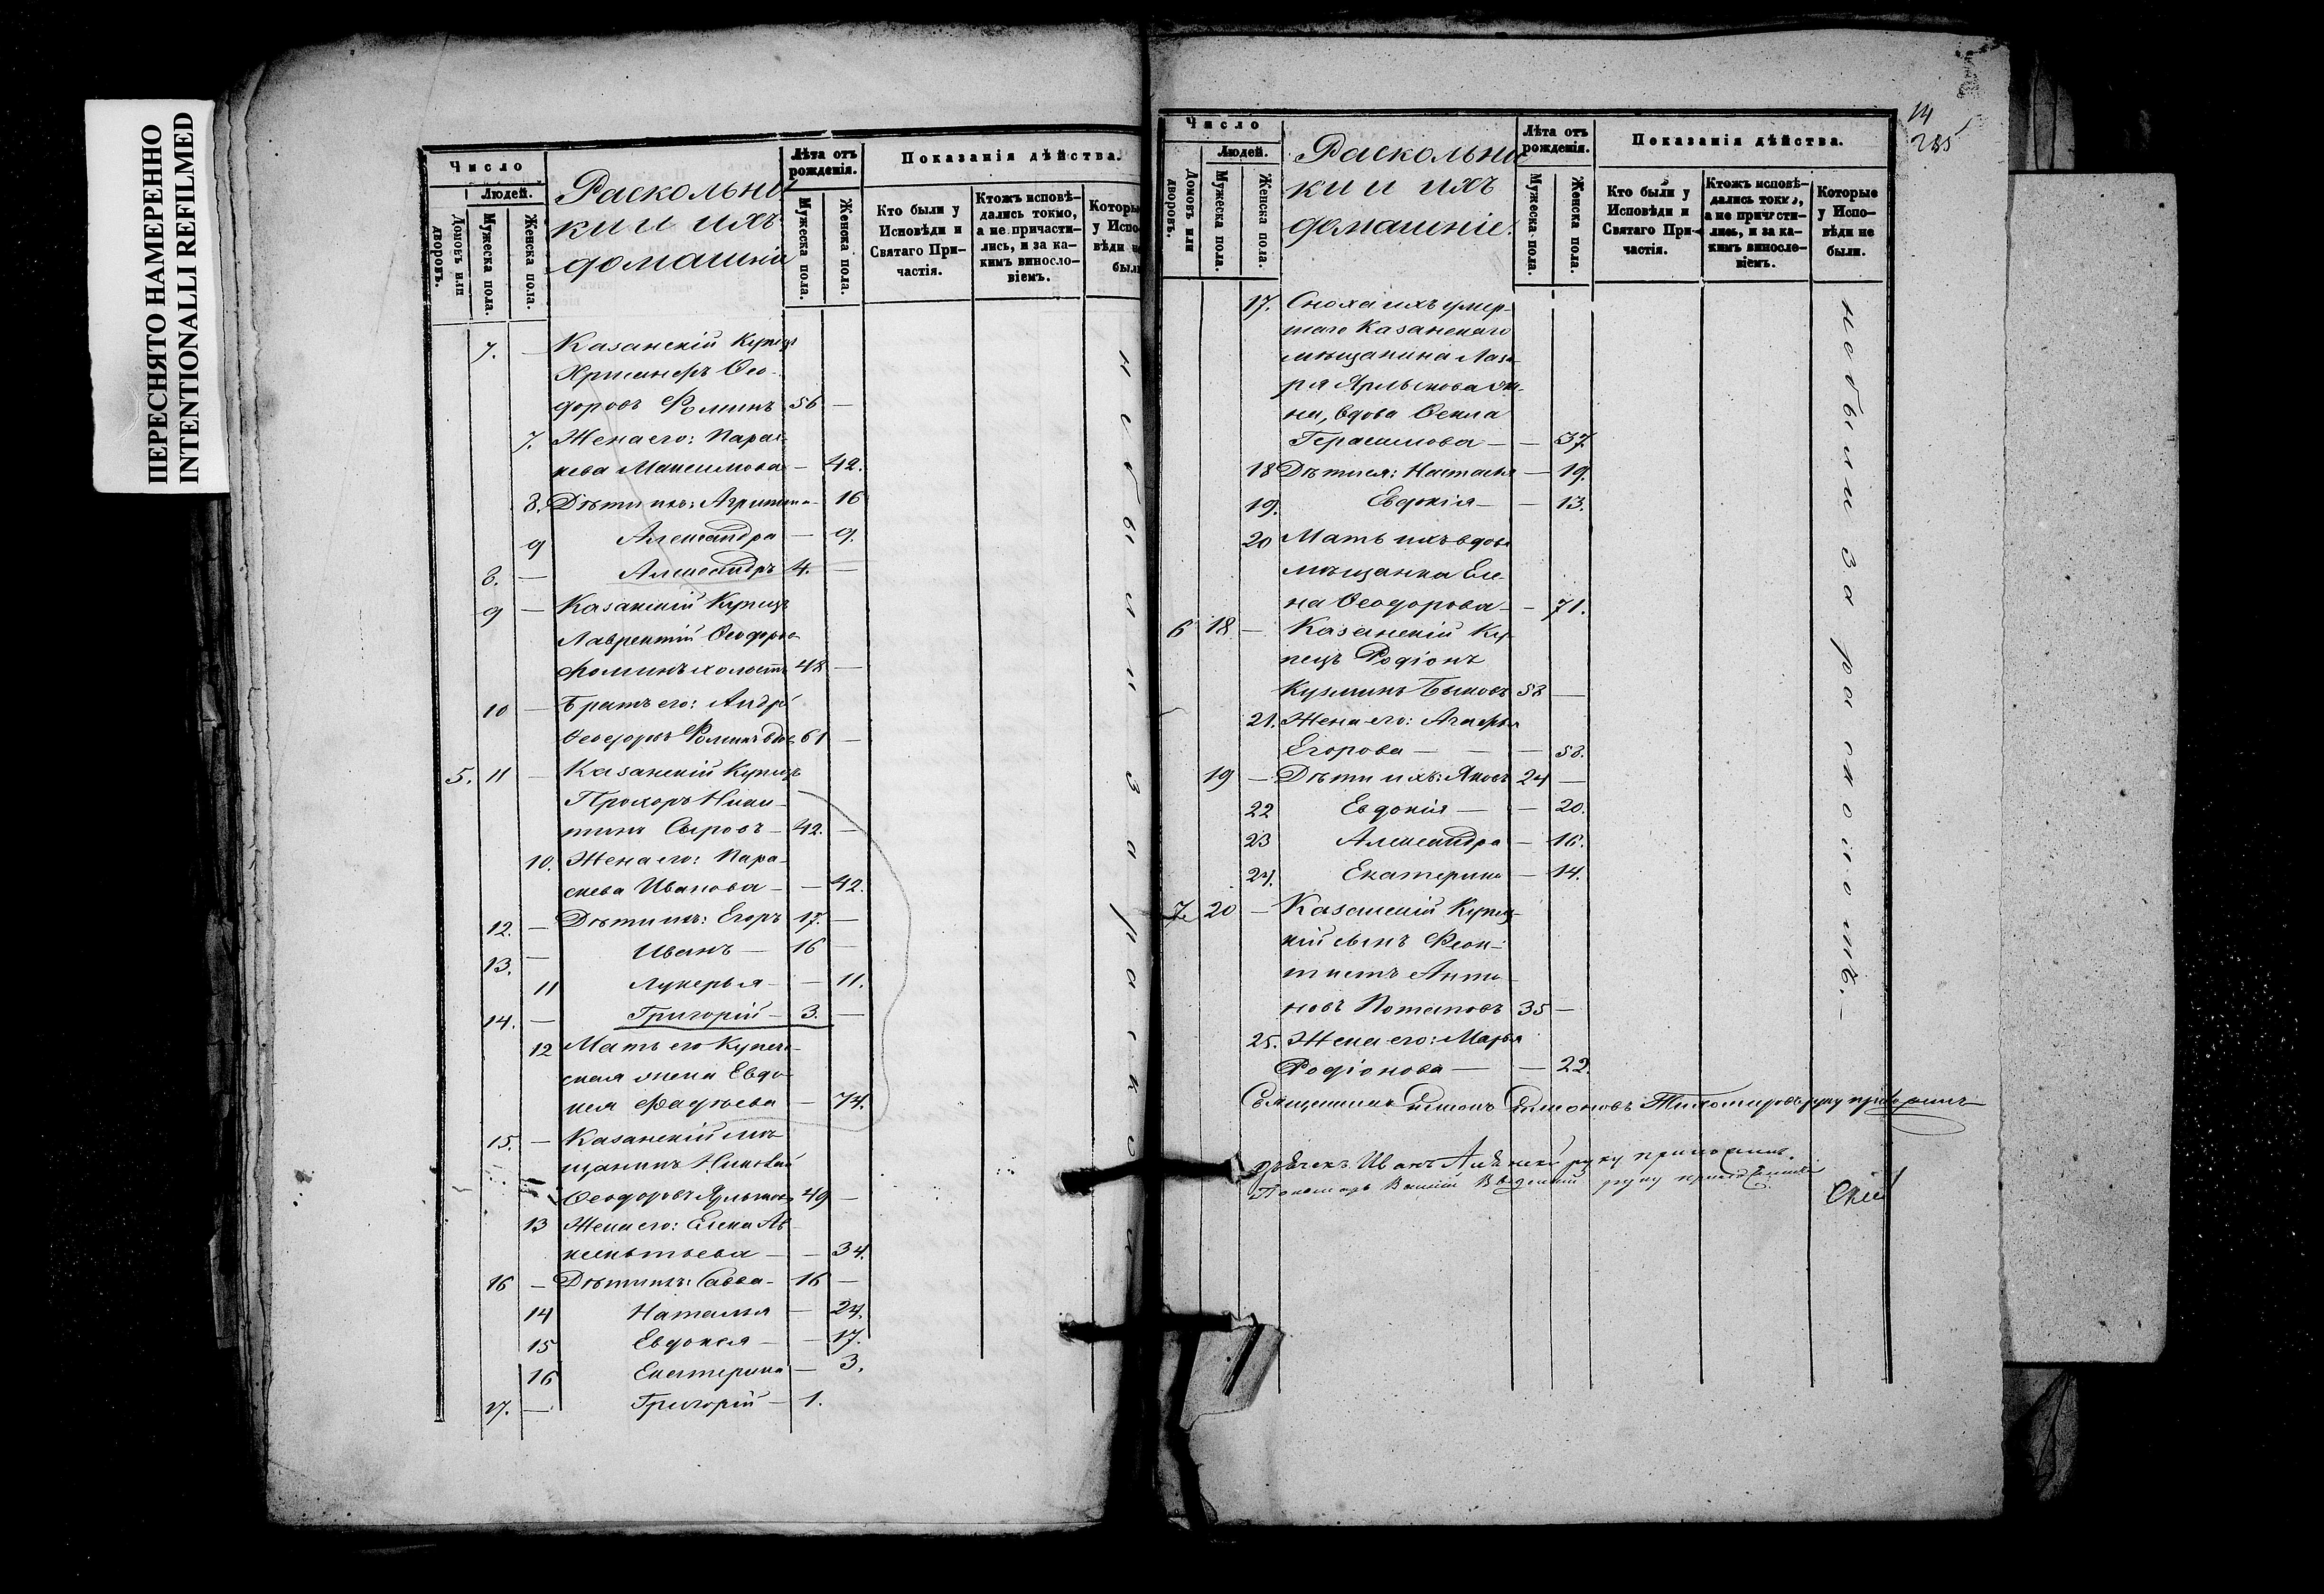 ПЕРЕСНЯТО НАМЕРЕННО
INTENTIONALLI REFILMED
Число
Людей.
Домовъ или дворовъ.
Мужеска пола.
Женска пола.
Раскольни
ки и ихъ
домашніе
Лѣта отъ рожденія.
Мужеска пола.
Женска пола.
Показанія дѣйства.
Кто были у Исповѣди и Святаго Причастія.
Ктожъ исповѣдались токмо, а не причастились, и за какимъ винословіемъ.
Которые у Исповѣди не были
7. — Казанскій Купецъ
Ѳео-
доровъ Фоминъ 56 —
7. Жена его: Парас-
кева Максимова — 42.
8. Дѣти ихъ: Агрипина — 16
9 Александра — 9.
8. — Александръ 4. —
9 — Казанскій Купецъ
Лаврентій Ѳеодоровъ
Фоминъ холостъ 48 —
10 — Братъ его: Андрей
Ѳеодоровъ Фоминъ вдов. 61 —
5. 11 — Казанскій Купецъ
Прохоръ Ники-
тинъ Сыровъ — 42. —
10. Жена его: Пара-
скева Иванова — — 42.
12. — Дѣти ихъ: Егоръ 17. —
13. — Иванъ — 16 —
11 Лукерья — — 11.
14. — Григорій — 3. —
12 Мать его Купече-
ская жена Евдо-
кія Фадѣева — 74.
15. — Казанскій мѣ-
щанинъ Николай
Ѳеодоровъ Ярлыковъ 49 —
13 Жена его: Елена Ав-
ксентьева — — 34.
16 — Дѣти ихъ: Савва — 16 —
14 Наталья — 24.
15 Евдокія — — 17.
16 Екатерина — 3.
17. — Григорій — 1.
не были за раскол
14
285
Число
Людей.
Домовъ или дворовъ.
Мужеска пола.
Женска пола.
Раскольни
ки и ихъ
домашніе.
Лѣта отъ рожденія.
Мужеска пола.
Женска пола.
Показанія дѣйства.
Кто были у Исповѣди и Святаго Причастія.
Ктожъ исповѣдались токмо, а не причастились, и за какимъ винословіемъ.
Которые у Исповѣди не были.
17. Сноха ихъ умер-
шаго Казанскаго
мѣщанина Лаза-
ря Ярлыкова же-
на, вдова Ѳекла
Герасимова — — 37.
18 Дѣти ея: Настасья — 19.
19. Евдокія — — 13.
20 Мать ихъ вдова
мѣщанка Еле-
на Ѳеодорова — — 71.
6 18 — Казанскій Ку-
пецъ Родіонъ
Кузминъ Быковъ 53 —
21. Жена его: Агафья
Егорова — — — 53.
19 — Дѣти ихъ: Яковъ 24 —
22 Евдокія — — 20.
23 Александра — 16.
24. Екатерина — 14.
7. 20 — Казанскій Купец-
кій сынъ Феок-
тистъ Анти-
повъ Потаповъ 35 —
25. Жена его: Марья
Родіонова — — 22.
не были за расколомъ. —
Священникъ Симеоновъ Тихомировъ руку приложилъ
Дьячекъ Иванъ руку приложилъ.
Пономарь Введенскій руку приложилъ